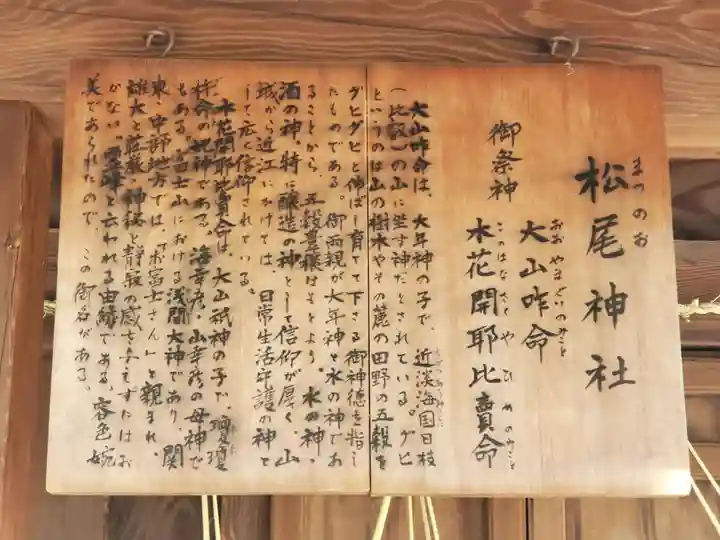 松尾神社
まつのお
御祭神
大山咋命
おおやまぐいのみこと
木花開耶比賣命
このはなさくやひめのみこと
大山咋命は、大年神の子で、近淡海国日枝
(比叡)の山に坐す神だとされている。グヒ
というのは山の樹木やその麓の田野の五穀を
グヒグヒと伸ばし育てて下さる御神徳を指し
たものである。御両親が大年神と水の神であ
ることから、五穀豊穣はもとより、水の神、
酒の神、特に醸造の神として信仰が厚く、山
城から近江にかけては、日常生活守護の神と
して広く信仰されている。
木花開耶比賣命は、大山祇神の子で、瓊瓊
杵命の妃神である。海幸彦・山幸彦の母神で
もある。富士山における浅間大神であり、関
東・中部地方では、「お富士さん」と親まれ、
雄大と荘厳・神秘と静寂の感を与えずにはお
かない。霊峰と云われる由縁である。容色婉
美であられたので、この御名がある。